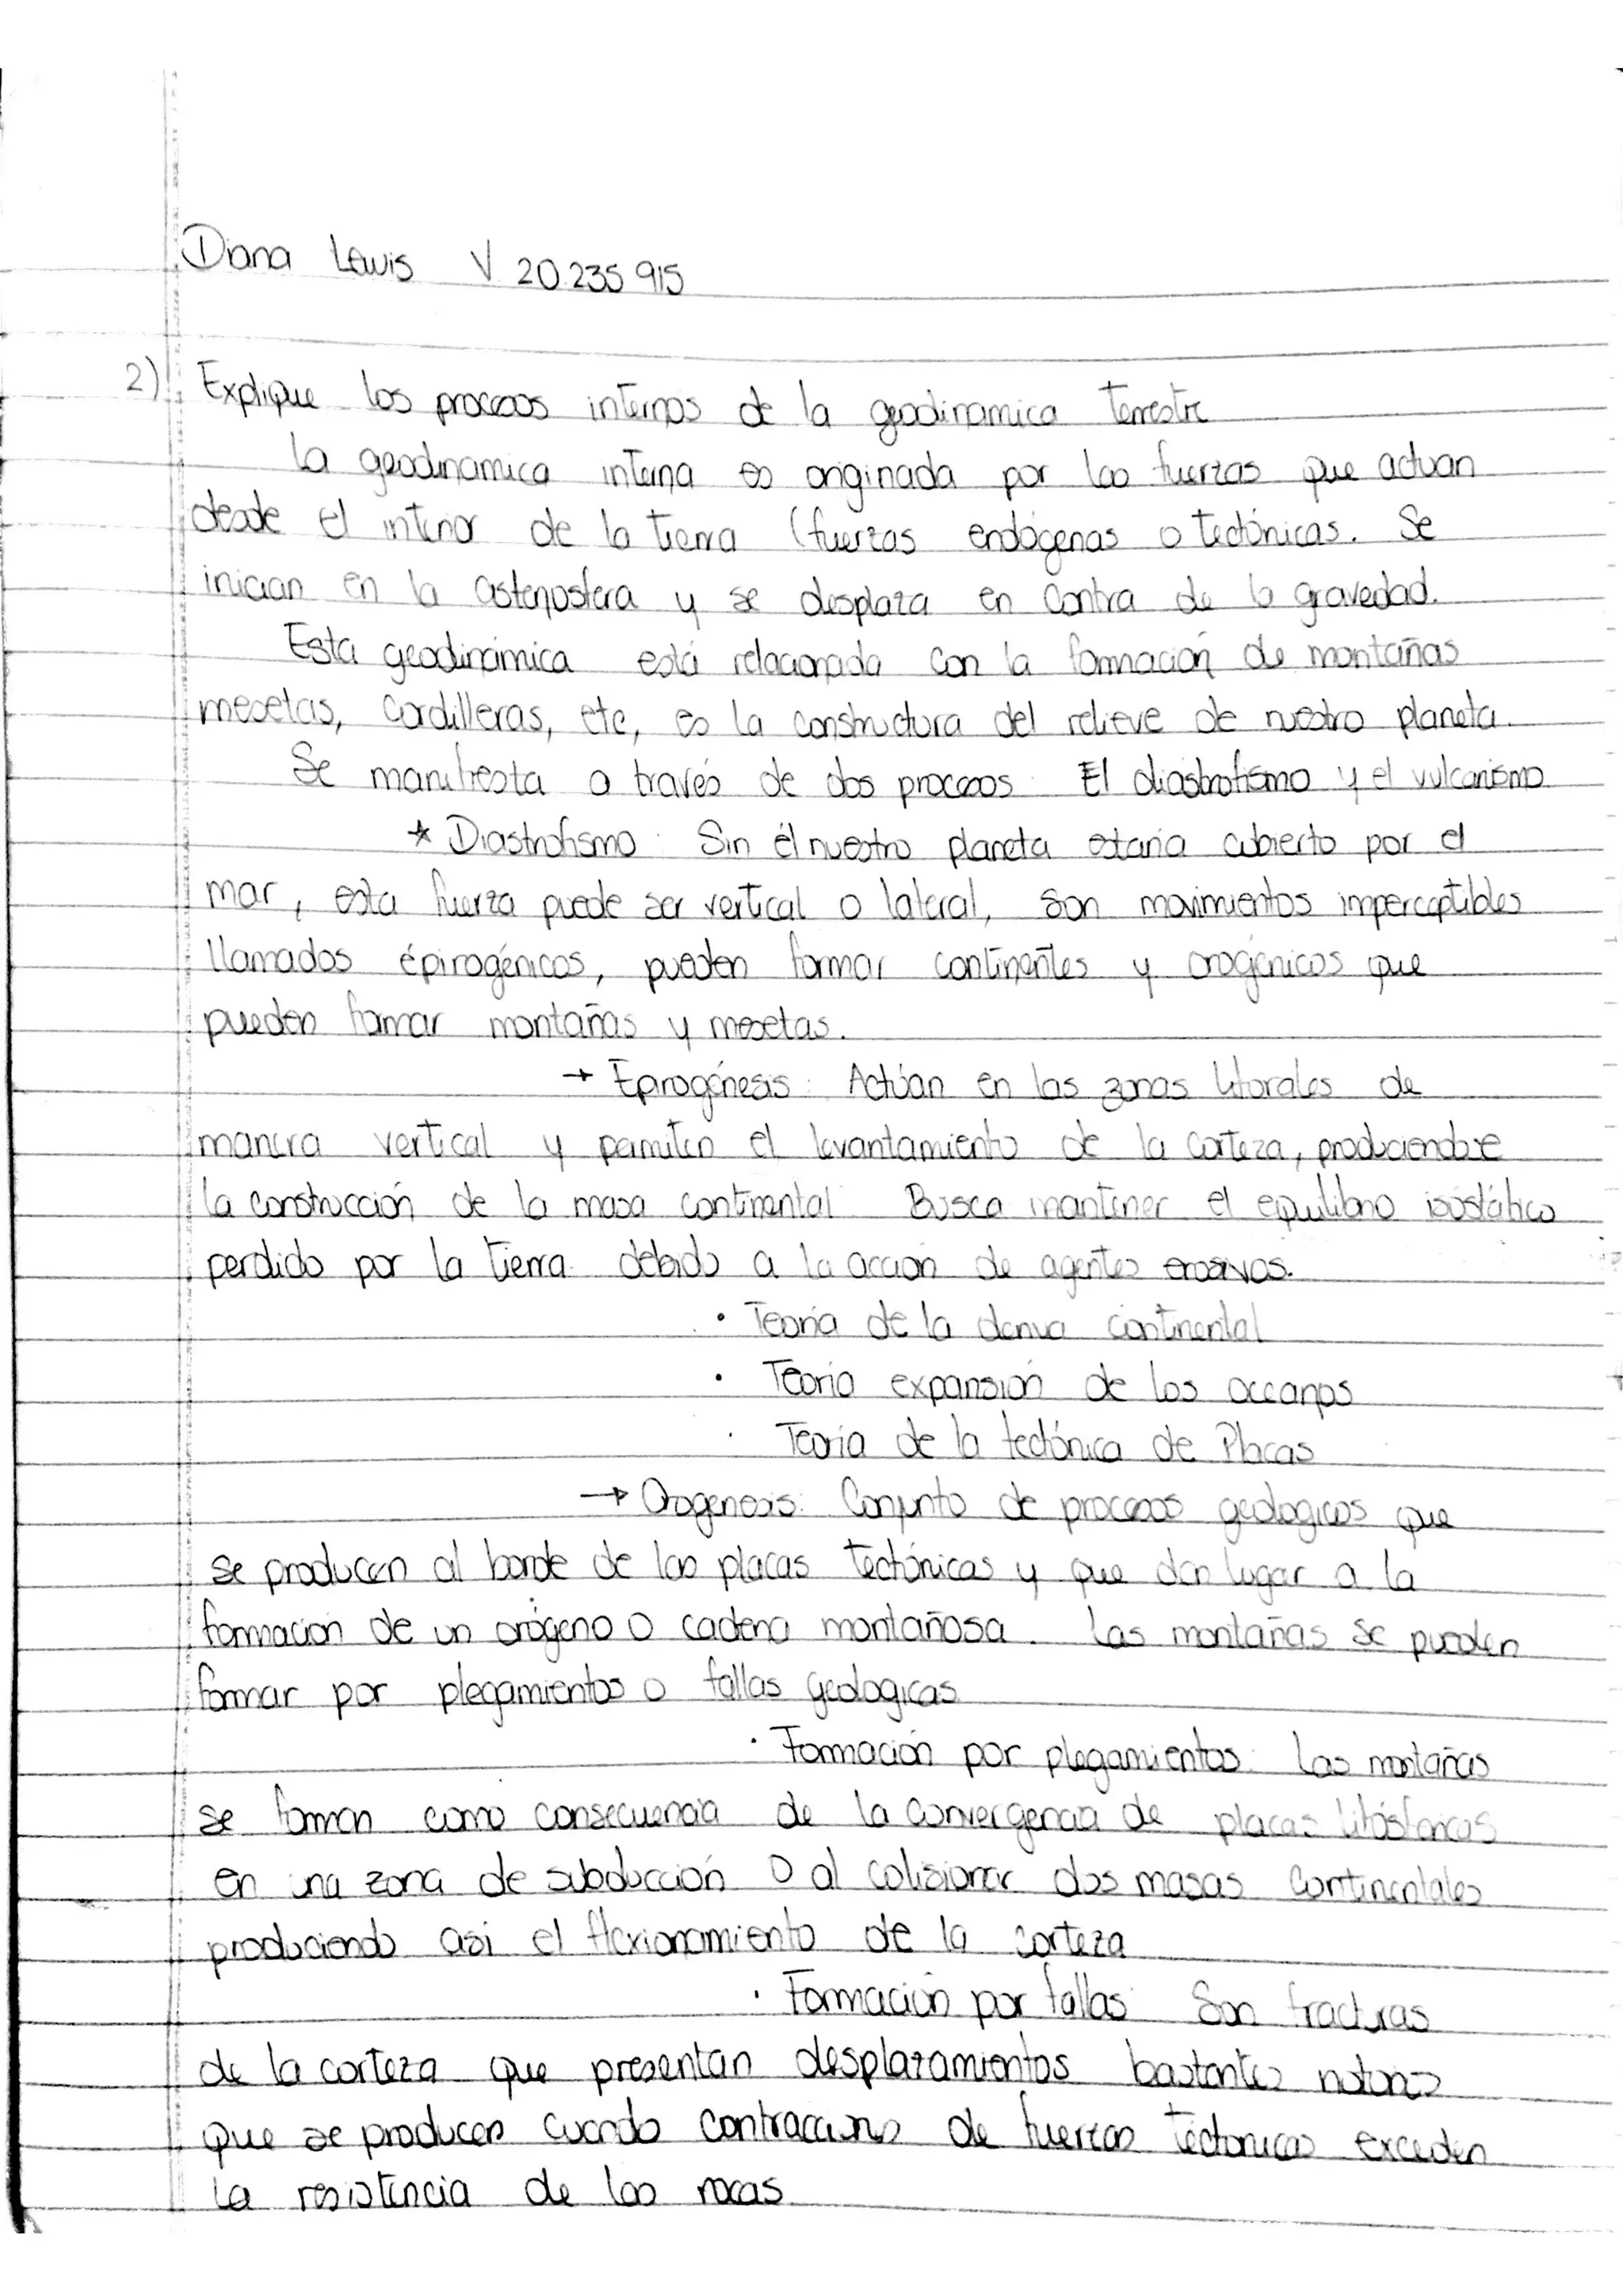 Diana Lewis V 20.235.915
2) Explique los procesos internos de la geodinamica terrestre
La geodinamica interna es originada por las fuerzas que actuan
desde el interior de la tierra (fuerzas endógenas o tectónicas. Se
inician en la astenosfera y se desplaza en contra de la gravedad.
Esta geodinámica está relacionada con la formación de montañas
mesetas, cordilleras, etc, es la constructura del relieve de nuestro planeta.
Se manifiesta a través de dos procesos El diastrofismo y el vulcanismo
* Diastrofismo: Sin él nuestro planeta estaria cubierto por el
mar, esta fuerza puede ser vertical o lateral, son movimientos imperceptibles
llamados épirogénicos, pueden formar continentes y orogénicos que
pueden formar montañas y mesetas.
→ Epirogénesis: Actúan en las zonas litorales de
manera vertical y permiten el levantamiento de la corteza, produciendose
la construcción de la masa continental Busca mantener el equilibrio isostático
perdido por la tierra debido a la acción de agentes erosivos.
• Teoria de la deriva continental
• Teoria expansión de los oceanos
• Teoría de la tectónica de Placas
→ Orogenesis: Conjunto de procesos geologicos que
se producen al borde de las placas tectónicas y que dan lugar a la
formacion de un orógeno o cadena montañosa. Las montañas se pueden
formar por plegamientos o fallas geologicas
• Formación por plegamientos: Las montañas
se forman como consecuencia de la convergencia de placas litósfericas
en una zona de subducción o al colisionar dos masas continentales
produciendo asi el flexionamiento de la corteza
• Formación por fallas Son fracturas
de la corteza que presentan desplazamientos bastantes notorios
que se producen cuando contracciones de fuerzas tectonicas exceden
la resistencia de las rocas